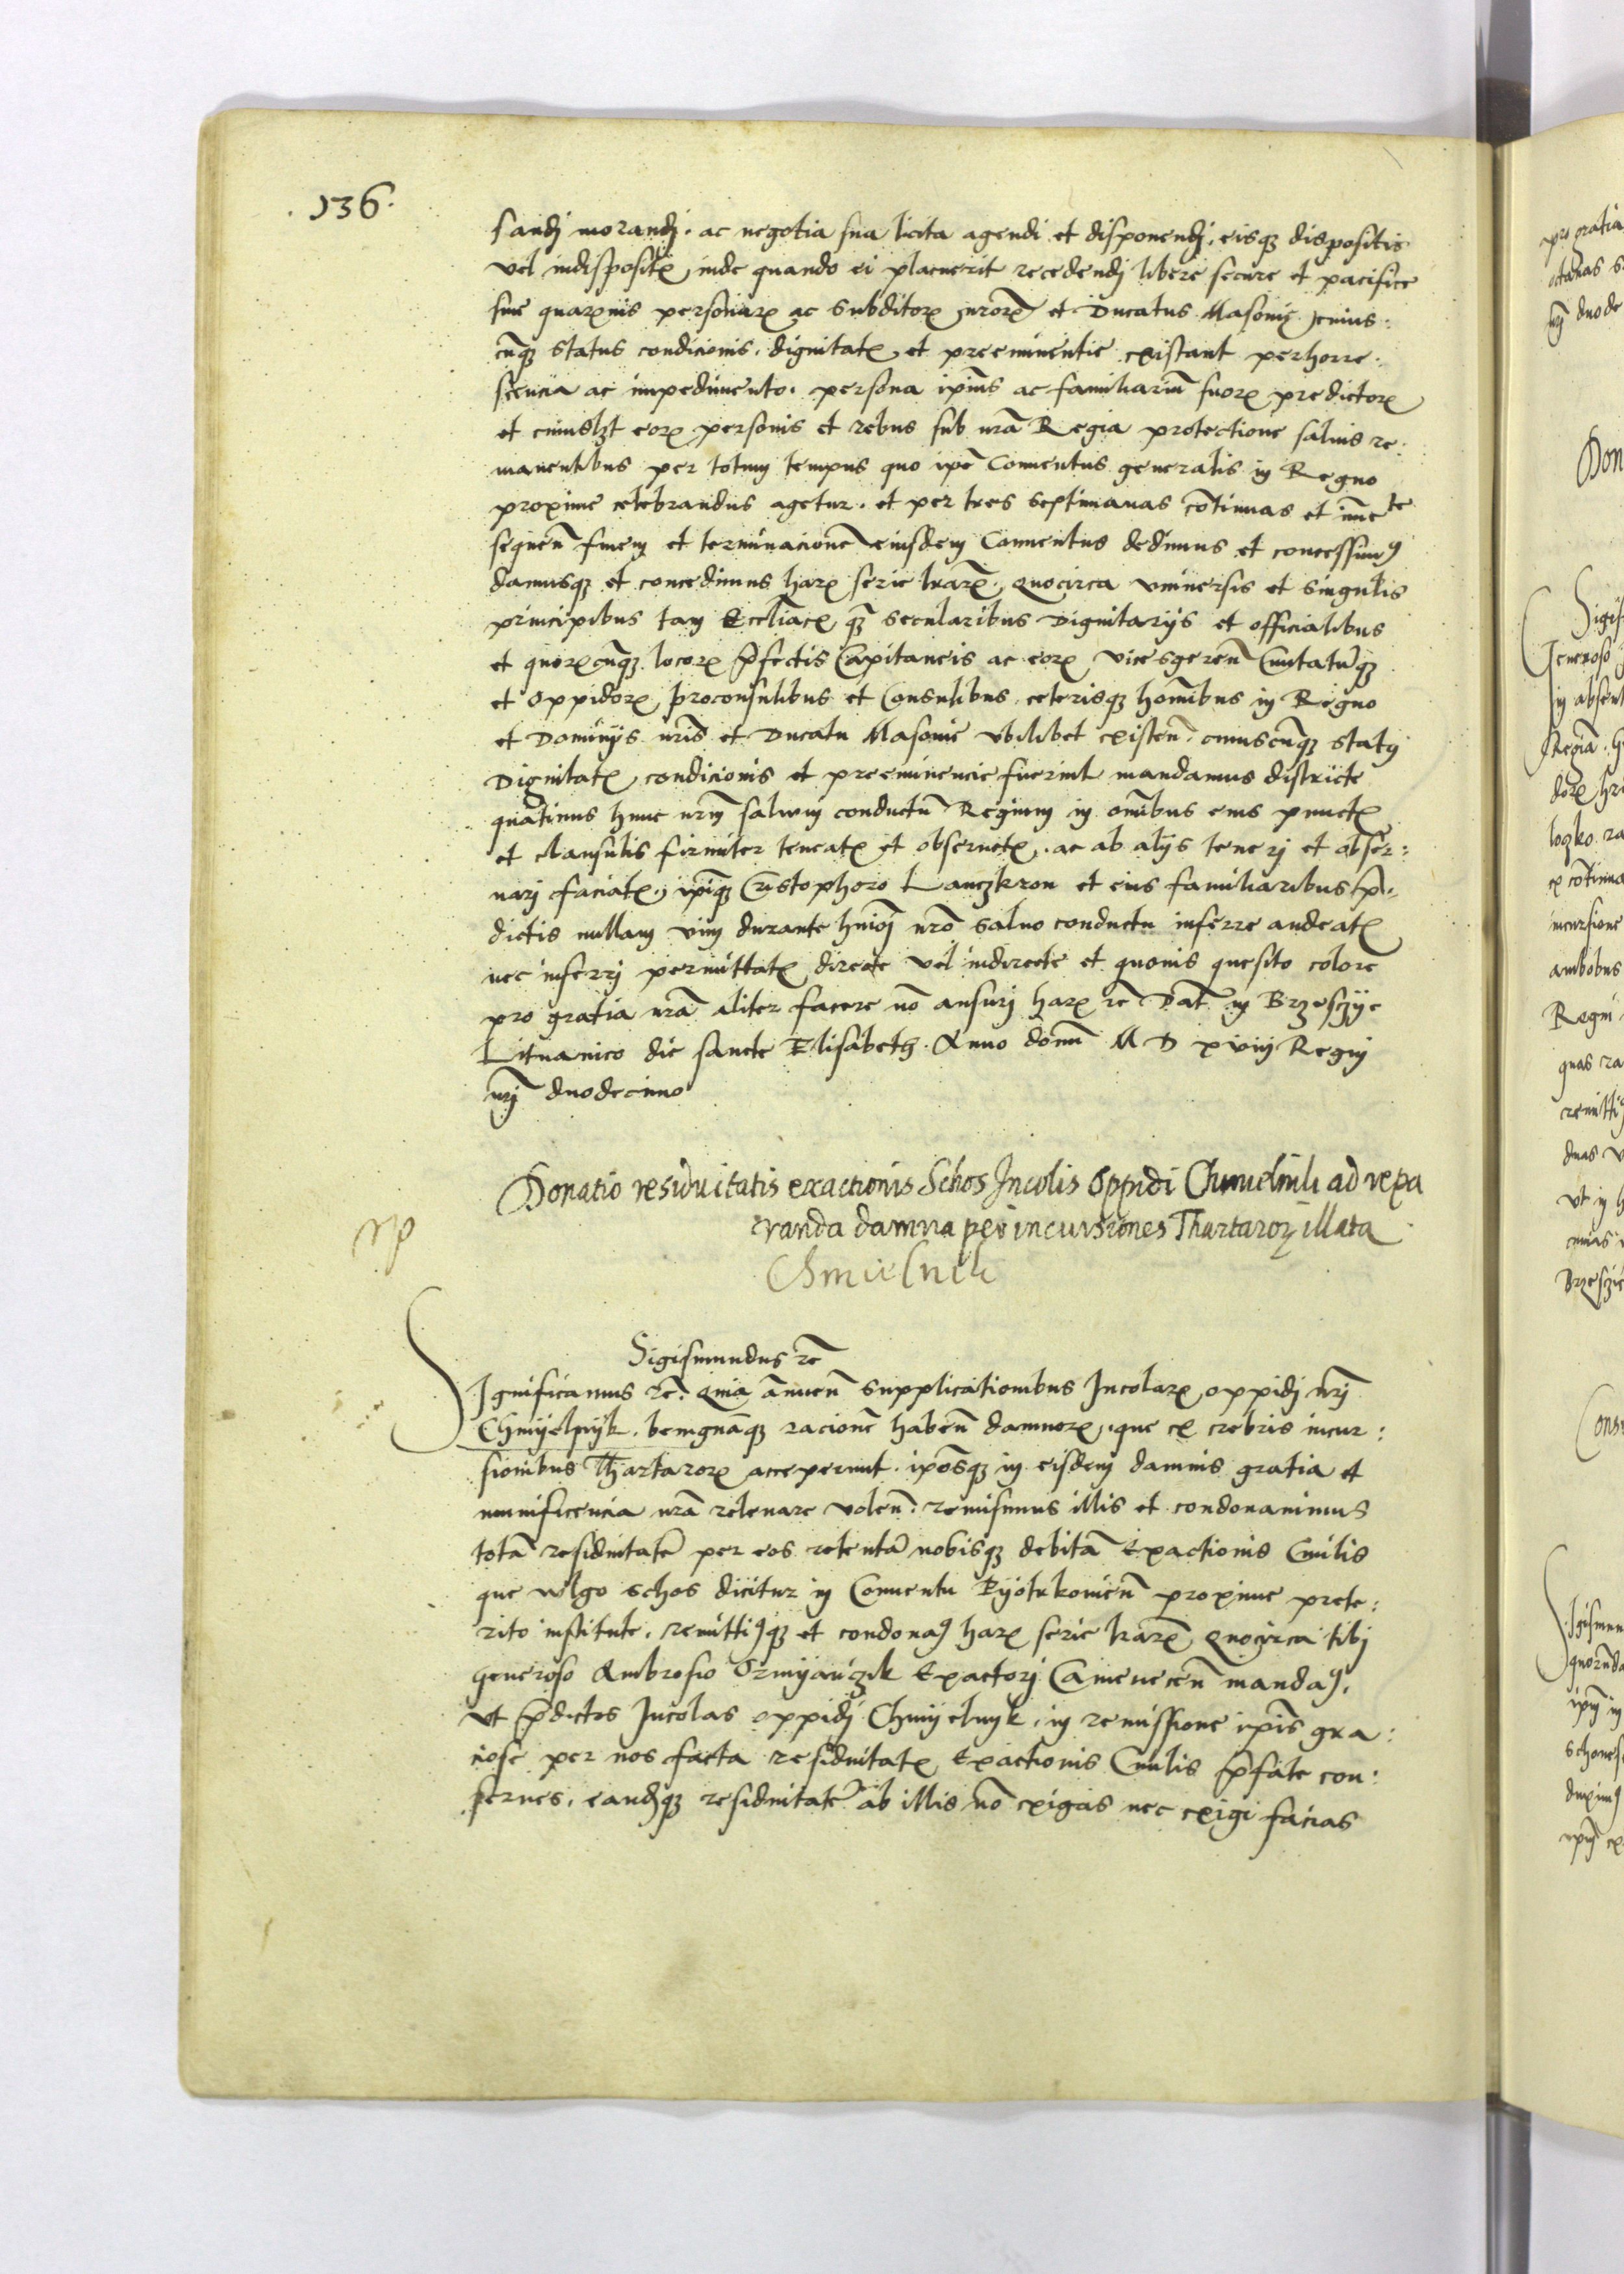 136.
sandj morandj. ac negotia sua licita agendi et disponendj. eisq3 dispositis
vel indispositis, inde quando ei placuerit recedendj libere secure et pacifice
sine quarumvis personarum ac Subditorum nrorum et Ducatus Masovie cuius:
cunq3 status condicionis. dignitatis et preeminentie existant perhorre:
scencia ac impedimento. persona ipius ac familiarium suorum predictorum
et cuiuslibet eorum personis et rebus sub nra Regia protectione salvis re:
manentibus per totum tempus quo ipe Conventus generalis in Regno
proxime celebrandus agetur. et per tres septimanas cotinuas et imte
sequen finem et terminacione eiusdem Conventus dedimus et concessimus
damusq3 et concedimus harum serie lrarum. Quocirca universis et singulis
principibus tam Eccliacis qm secularibus Dignitarijs et officialibus
et quorumcunq3 locorum pfectis Capitaneis ac eorum vicesgeren Civitatuq3
et Oppidorum proconsulibus et Consulibus. ceterisq3 hoibus in Regno
et Dominijs nris et Ducatu Masovie ubilibet existen. cuiuscunq3 status
Dignitatis, condicionis et preeminencie fuerint mandamus districte
quatinus hunc nrm salvum conductu Regium in omibus eius punctis
et clausulis firmiter teneatis et observetis. ac ab alijs tenerj et obser:
varj faciatis, ipiq3 Cristophoro Lanczkron et eius familiaribus p:
dictis nullam vim durante huioj nro salvo conductu inferre audeatis
nec inferrj permittatis directe vel indirecte et quovis quesito colore
pro gratia nra aliter facere no ausurj harum rc Dat in Brzesczye
Lituanico die sancte Elisabeth. Anno domi M D xviij Regnj
nrj duodecimo
Donatio residuitatis exactionis Schos Incolis Oppidi Chmielnik ad repa
randa damna per incursiones Thartaror3 illata
Chmielnik
Sigismundus rc
Significamus rc. Quia annuen supplicationibus Incolarum oppidj nrj
Chmyelnyk. benignaq3 racione haben damnorum, que ex crebris incur:
sionibus Thartarorum acceperunt. iposq3 in eisdem damnis gratia et
munificencia nra relevare volen. remisimus illis et condonavimus
tota residuitate per eos retenta nobisq3 debita Exactionis Civilis
que vulgo schos dicitur in Conventu Pyotrkovien proxime prete:
rito institute. remittimusq3 et condonamus harum serie lrarum, Quocirca tibj
generoso Ambrosio Ormyanczik Exactorj Camenecen mandamus.
Ut pdictos Incolas oppidj Chmyelnyk, in remissione ipis gra:
ciose per nos facta residuitatis Exactionis Civilis pfate con:
serves. eandq3 residuitate ab illis no exigas nec exigi facias